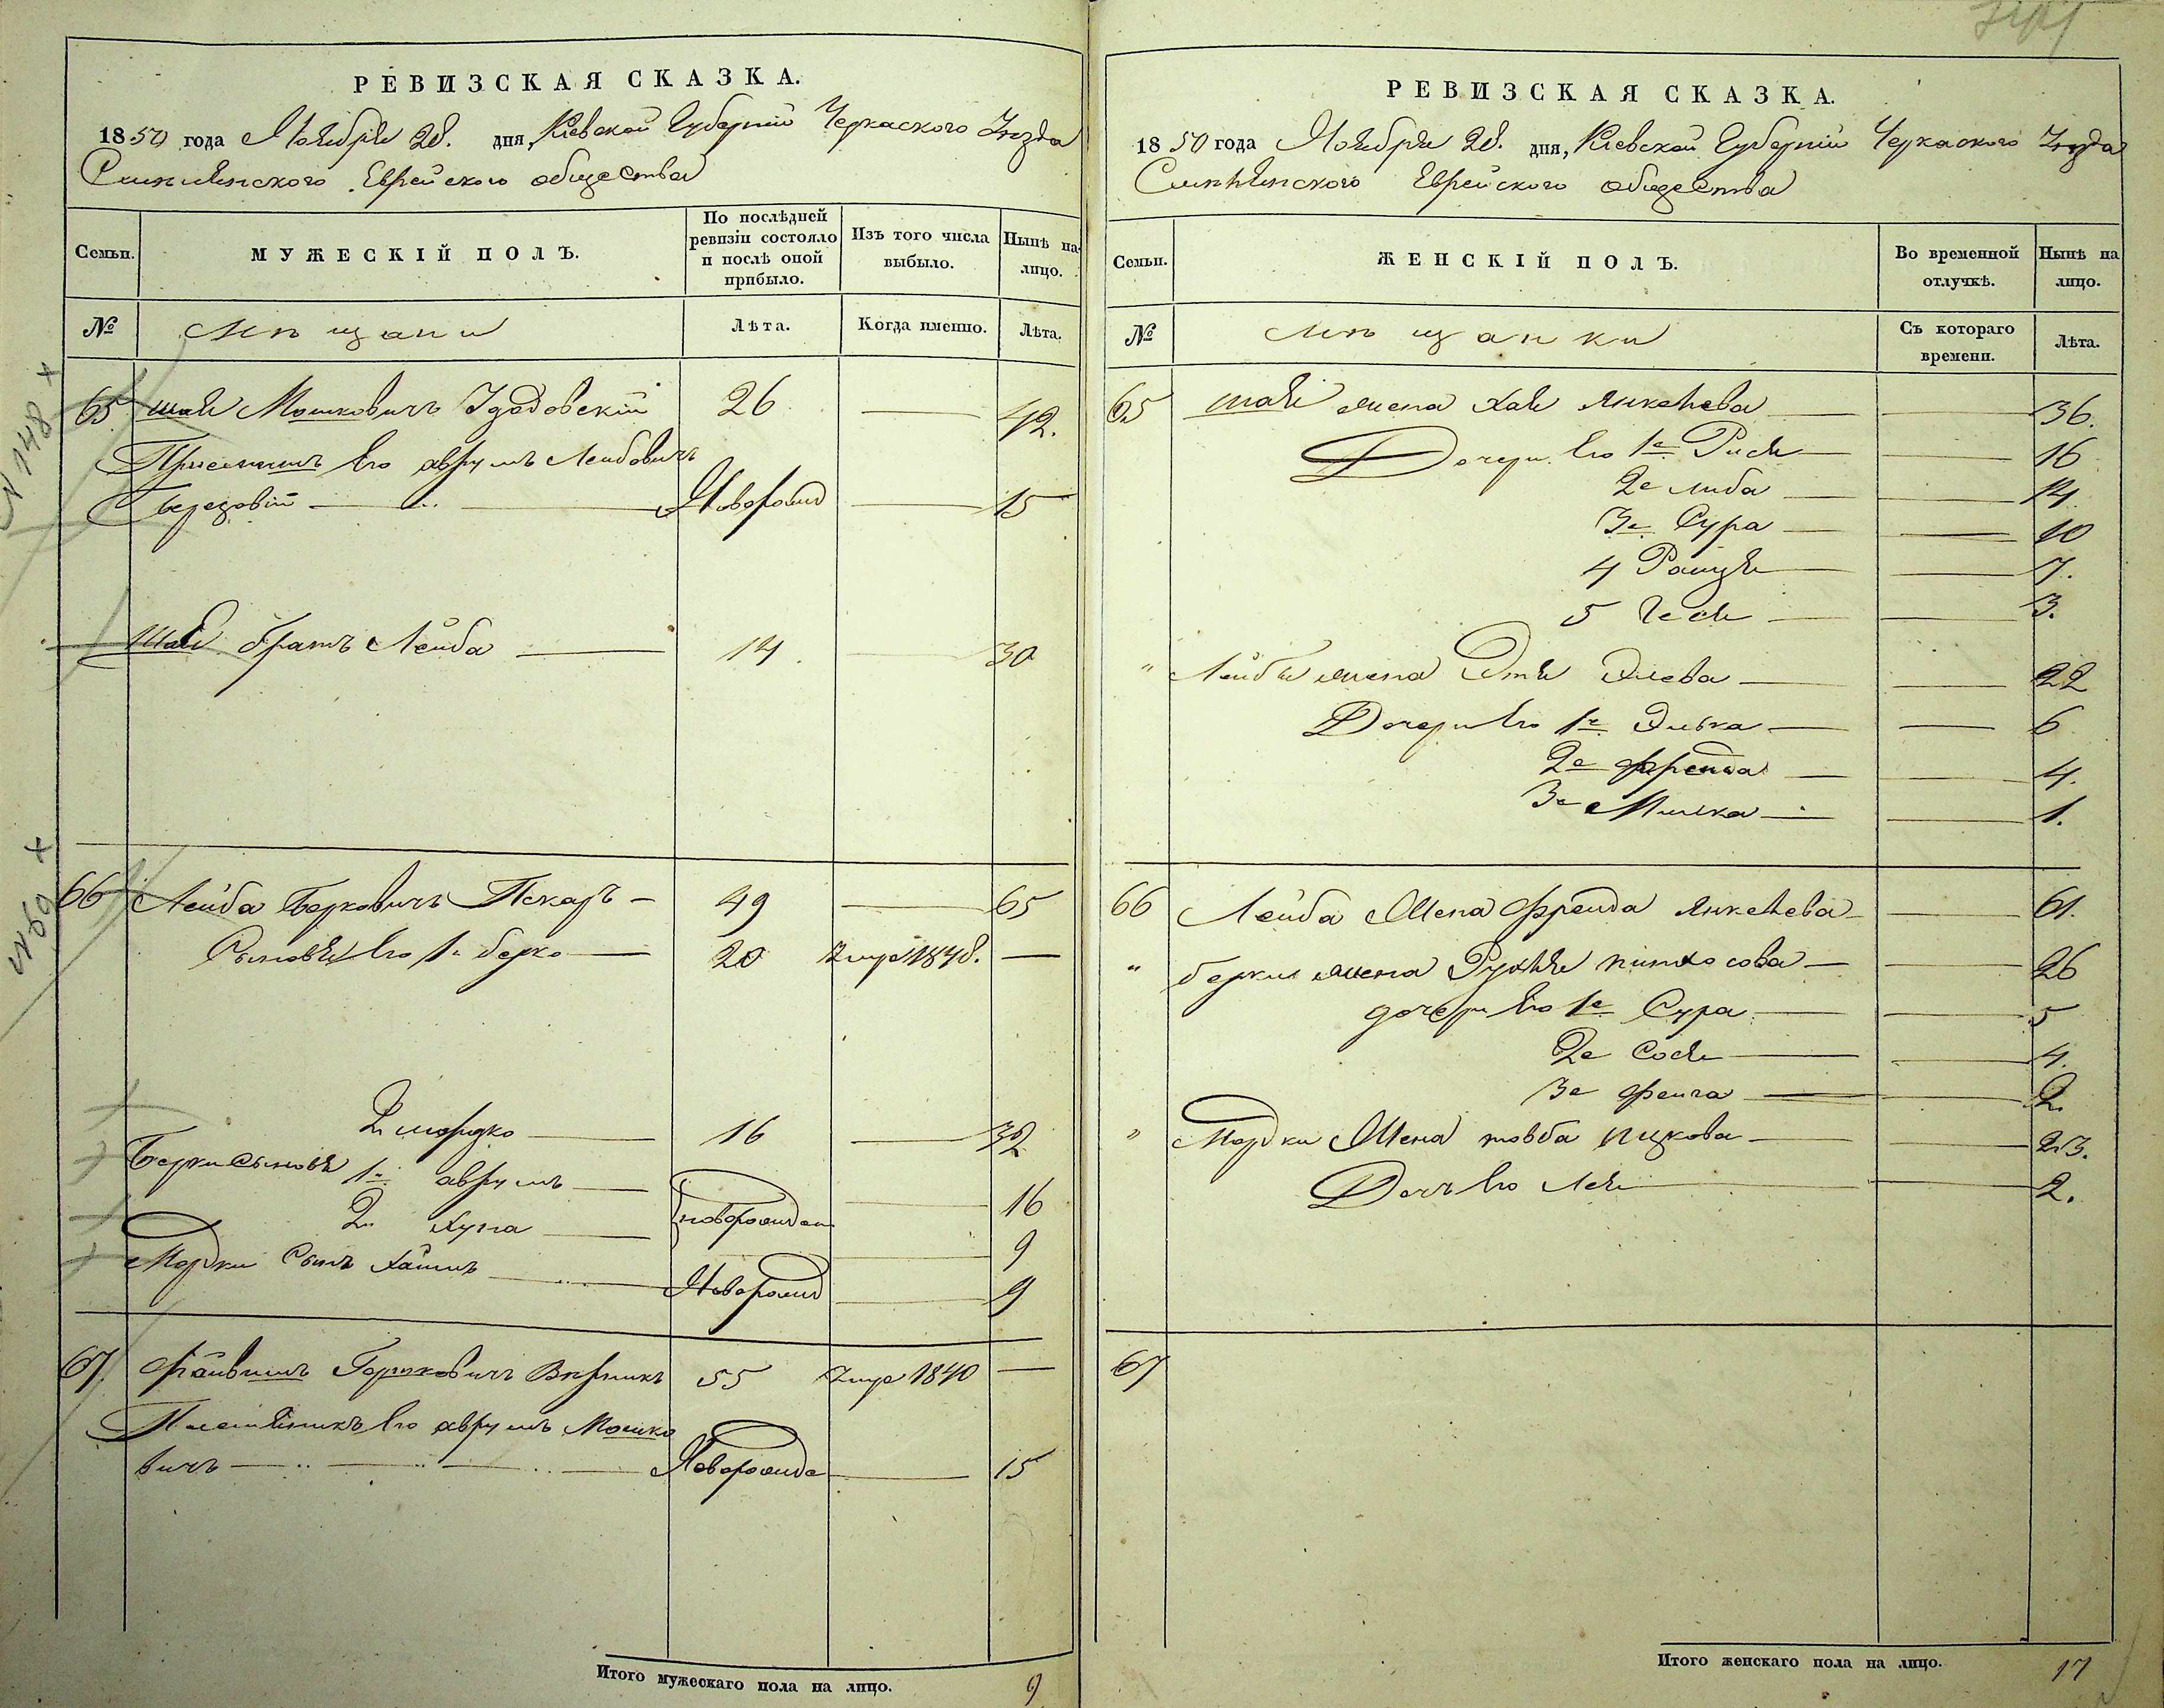 РЕВИЗСКАЯ СКАЗКА.
1850 года Ноября 28. дня, Кіевской Губерніи Черкаского Уезда
Смилянского Еврейского общества
Семьи.
МУЖЕСКІЙ ПОЛЪ.
По послѣдней ревизіи состояло и послѣ оной прибыло.
Изъ того числа выбыло.
Нынѣ на лицо.
№
Мѣщани
Лѣта.
Когда именно.
Лѣта.
N 148 +
65 Шая Мошковичъ Здадовскій 26 — 42.
Приемышъ Его аврумъ Лейбовичъ
Березовій — Новорожд — 15
Шаи братъ Лейба — 14. — 30
N 69 +
66 Лейба Берковичъ Пекаръ — 49 — 65
Сыновья Его 1й берко — 20 Умре 1848. —
2й мордко — 16 — 32
Берки сыновя 1й аврумъ — новорожден — 16
2й Хуна — 9
Мордки Сынъ Хаимъ — Новорожд — 9
67 Файвишъ Гершковичъ 55 Умре 1840 —
Племянникъ Его аврумъ Мошко
вичъ — Новорожде — 15
Итого мужескаго пола на лицо. 9
РЕВИЗСКАЯ СКАЗКА.
1850 года Ноября 28. дня, Кіевской Губерніи Черкаского Уезда
Смилянского Еврейского общества
Семьи.
ЖЕНСКІЙ ПОЛЪ.
Во временной отлучкѣ.
Нынѣ на лицо.
№
Мѣщанки
Съ котораго времени.
Лѣта.
65 Шаи жена Хая Янкелева — 36.
Дочери Его 1е Рися — 16
2е Либа — 14
3е Сура — 10
4 — 7.
5 — 3.
" Лейбы жена Этя — 22
Дочери Его 1е Элька — 6
2е Фрейда — 4.
3е Милка — 1.
66 Лейба Жена Фрейда Янкелева — 61.
" берки жена Рухля пинхосова — 26
дочери Его 1е Сура — 5
2е Сося — 4.
3е Фейга — 2.
" Мордки Жена товба Ицкова — 23.
Дочъ Его Лея — 2.
67
Итого женскаго пола на лицо. 17